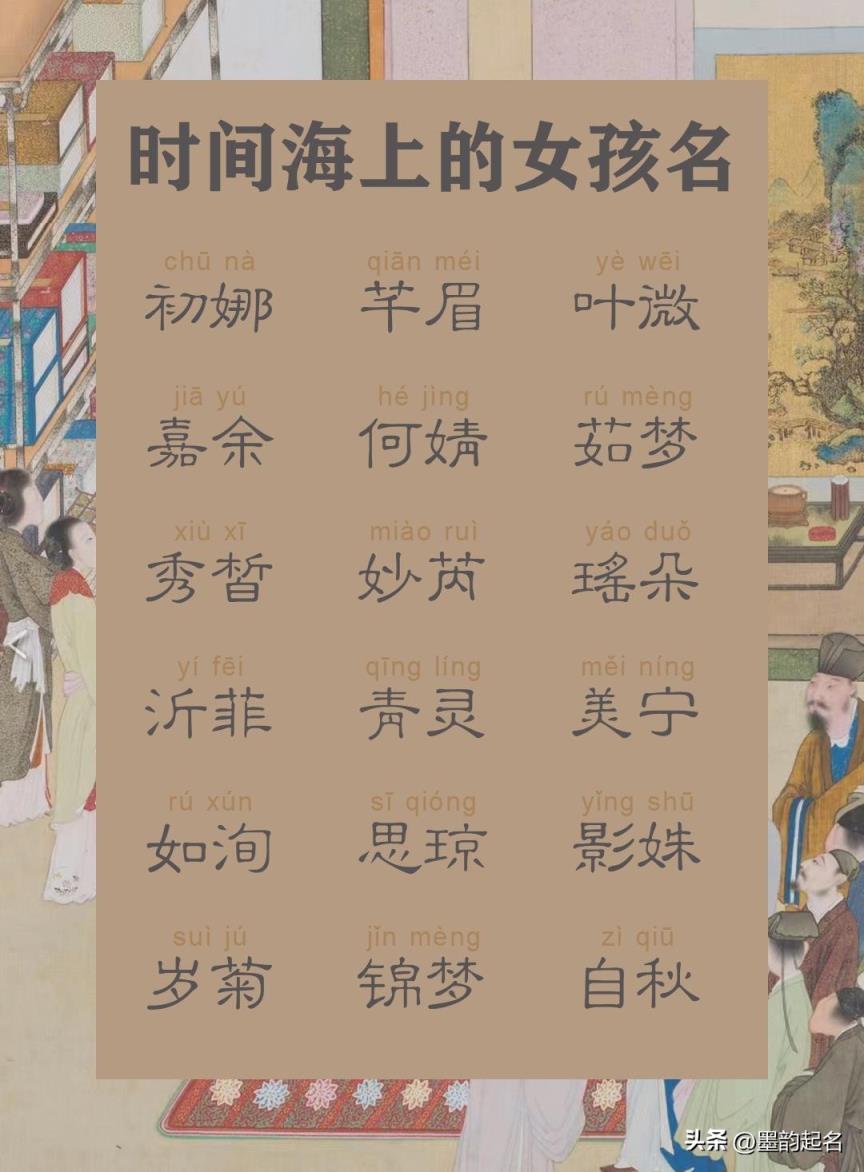 时间海上的女孩名
chū nà qiān méi yè wēi
初娜 芊眉 叶微
jiā yú hé jìng rú mèng
嘉余 何婧 茹梦
xiù xī miào ruì yáo duǒ
秀皙 妙芮 瑤朵
yí fēi qīng líng měi níng
沂菲 青灵 美宁
rú xún sī qióng yǐng shū
如洵 思琼 影姝
suì jú jǐn mèng zì qiū
岁菊 锦梦 自秋
头条 @墨韵起名